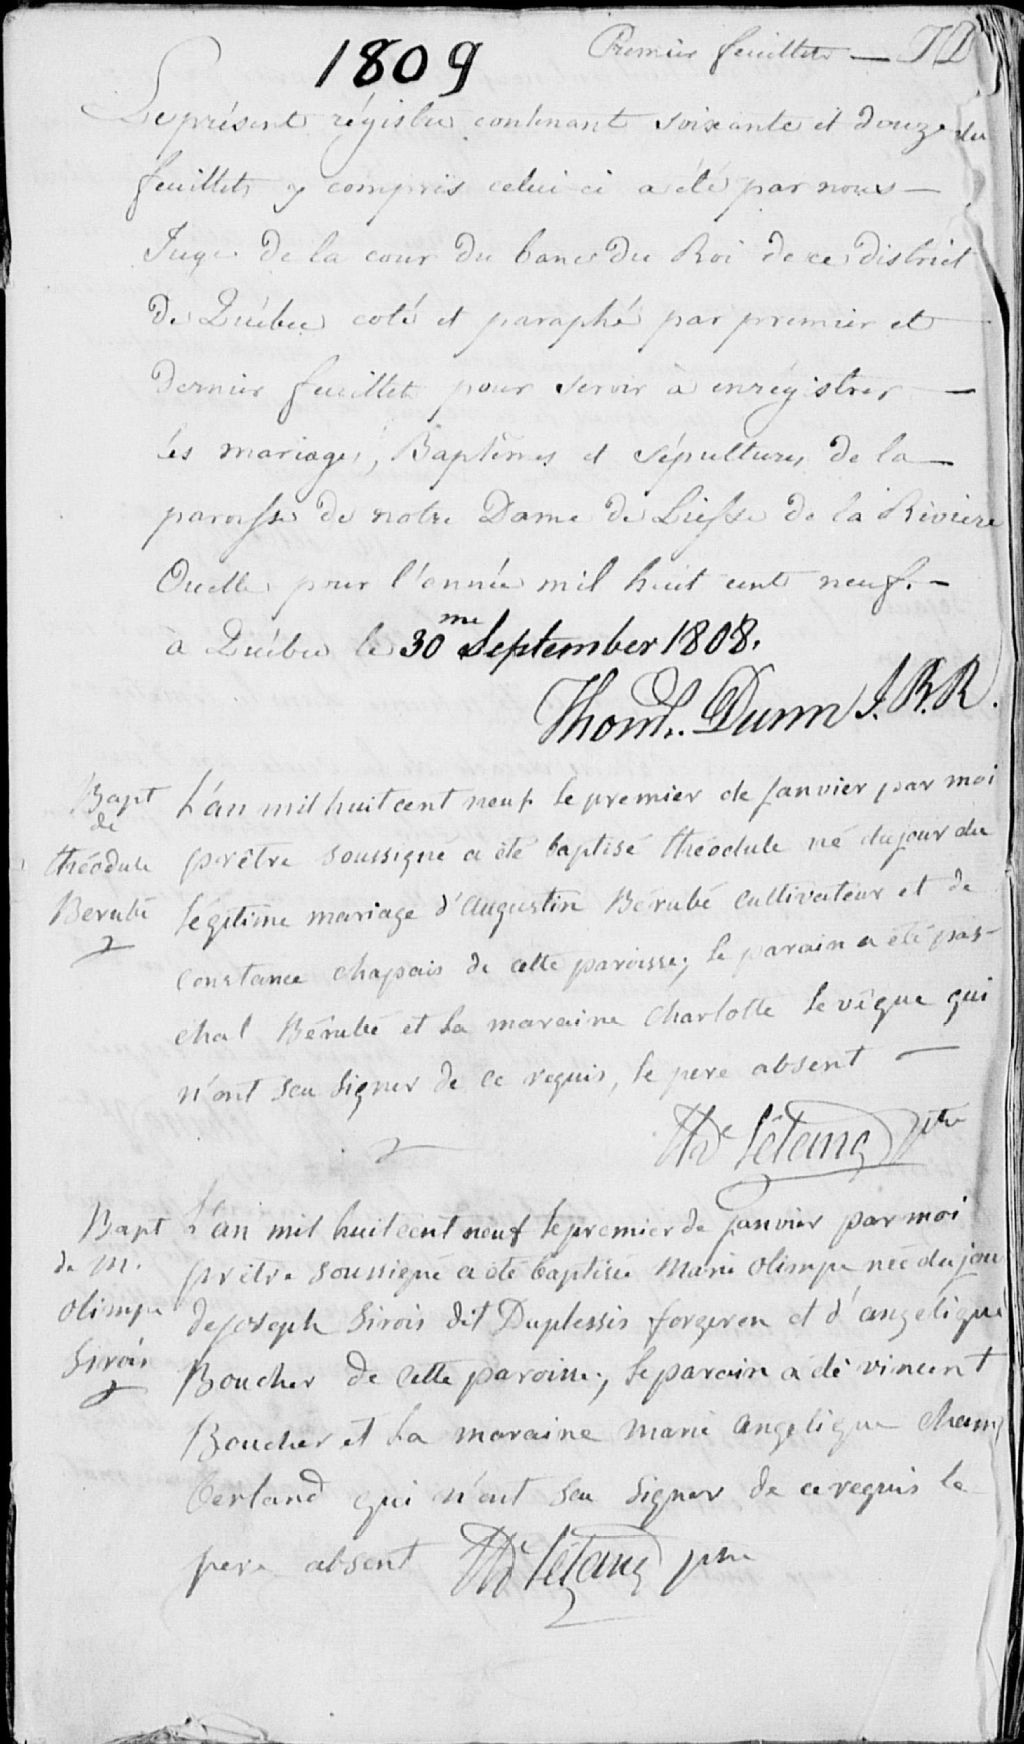 1809
Premier feuillet — TD
Le présent régistre contenant soixante et douze
feuillets y compris celui ci a été par nous —
Juge de la cour du banc du Roi de ce district
de Québec coté et paraphé par premier et
dernier feuillet pour servir à enrégistrer —
les mariages, Baptêmes et sépultures de la —
paroisse de notre Dame de Liesse de la Riviere
Ouelle pour l'année mil huit cent neuf. —
à Québec le 30me September 1808.
Thoms. Dunn J.B.R.
Bapt
de
théodule
Berubé
L'an mil huit cent neuf le premier de janvier par moi
prêtre soussigné a été baptisé théodule né du jour du
légitime mariage d'augustin Bérubé cultivateur et de
constance chapais de cette paroisse; le parain a été pas-
chal Bérubé et la maraine charlotte levêque qui
n'ont seu signer de ce requis, le pere absent —
Létang ptre
Bapt
de M.
olimpe
Sirois
L'an mil huit cent neuf le premier de janvier par moi
prêtre soussigné a été baptisée marie olimpe née du jour
de joseph Sirois dit Duplessis forgeron et d'angelique
Boucher de cette paroisse; le parain a été vincent
Boucher et la maraine marie angelique cham
berland qui n'ont seu signer de ce requis le
pere absent Létang ptre